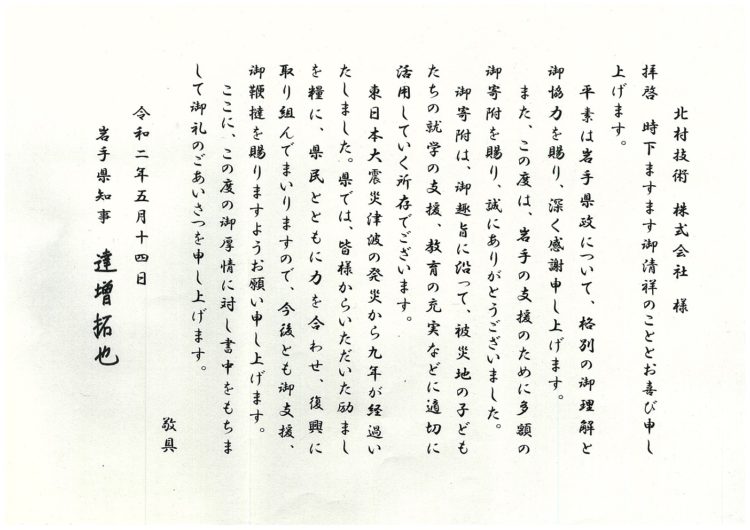 北村技術 株式会社 様
拝啓 時下ますます御清祥のこととお喜び申し
上げます。
平素は岩手県政について、格別の御理解と
御協力を賜り、深く感謝申し上げます。
また、この度は、岩手の支援のために多額の
御寄附を賜り、誠にありがとうございました。
御寄附は、御趣旨に沿って、被災地の子ども
たちの就学の支援、教育の充実などに適切に
活用していく所存でございます。
東日本大震災津波の発災から九年が経過い
たしました。県では、皆様からいただいた励まし
を糧に、県民とともに力を合わせ、復興に
取り組んでまいりますので、今後とも御支援、
御鞭撻を賜りますようお願い申し上げます。
ここに、この度の御厚情に対し書中をもちま
して御礼のごあいさつを申し上げます。
敬具
令和二年五月十四日
岩手県知事 達増拓也